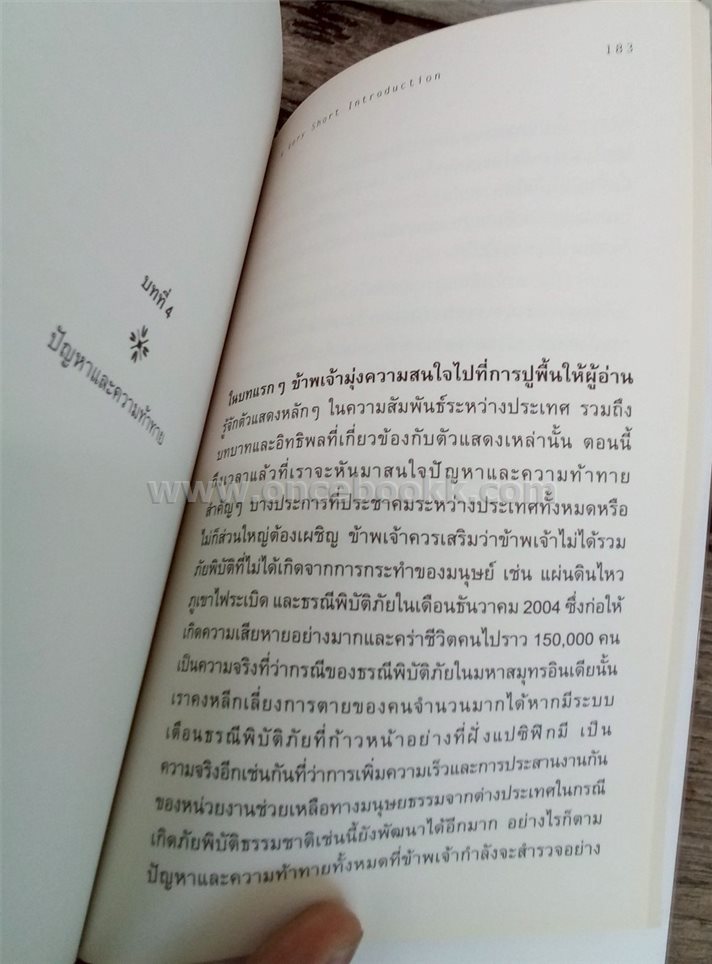 บทที่ 4
ปัญหาและความท้าทาย
Very Short Introduction
183
ในบทแรกๆ ข้าพเจ้ามุ่งความสนใจไปที่การปูพื้นให้ผู้อ่าน
รู้จักตัวแสดงหลักๆ ในความสัมพันธ์ระหว่างประเทศ รวมถึง
บทบาทและอิทธิพลที่เกี่ยวข้องกับตัวแสดงเหล่านั้น ตอนนี้
ถึงเวลาแล้วที่เราจะหันมาสนใจปัญหาและความท้าทาย
www.oncebookk.com
สำคัญๆ บางประการที่ประชาคมระหว่างประเทศทั้งหมดหรือ
ไม่ก็ส่วนใหญ่ต้องเผชิญ ข้าพเจ้าควรเสริมว่าข้าพเจ้าไม่ได้รวม
ภัยพิบัติที่ไม่ได้เกิดจากการกระทำของมนุษย์ เช่น แผ่นดินไหว
ภูเขาไฟระเบิด และธรณีพิบัติภัยในเดือนธันวาคม 2004 ซึ่งก่อให้
เกิดความเสียหายอย่างมากและคร่าชีวิตคนไปราว 150,000 คน
เป็นความจริงที่ว่ากรณีของธรณีพิบัติภัยในมหาสมุทรอินเดียนั้น
เราคงหลีกเลี่ยงการตายของคนจำนวนมากได้หากมีระบบ
เตือนธรณีพิบัติภัยที่ก้าวหน้าอย่างที่ฝั่งแปซิฟิกมี เป็น
ความจริงอีกเช่นกันที่ว่าการเพิ่มความเร็วและการประสานงานกัน
ของหน่วยงานช่วยเหลือทางมนุษยธรรมจากต่างประเทศในกรณี
เกิดภัยพิบัติธรรมชาติเช่นนี้ยังพัฒนาได้อีกมาก อย่างไรก็ตาม
ปัญหาและความท้าทายทั้งหมดที่ข้าพเจ้ากำลังจะสำรวจอย่าง